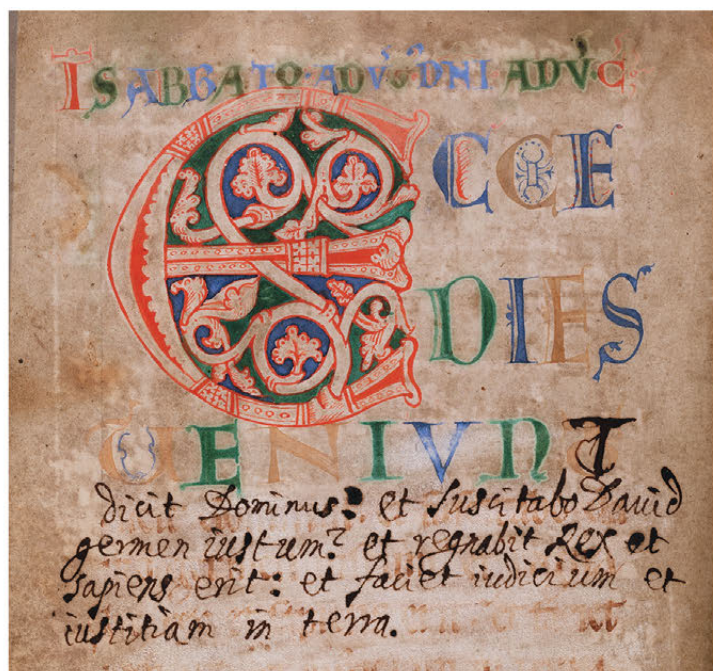 ISABBATO ADVS DNI ADVC
ECCE
DIES
VENIVNT
dicit Dominus? et suscitabo Dauid
germen iustum? et regnabit Rex et
sapiens erit: et faciet iudicium et
iustitiam in terra.